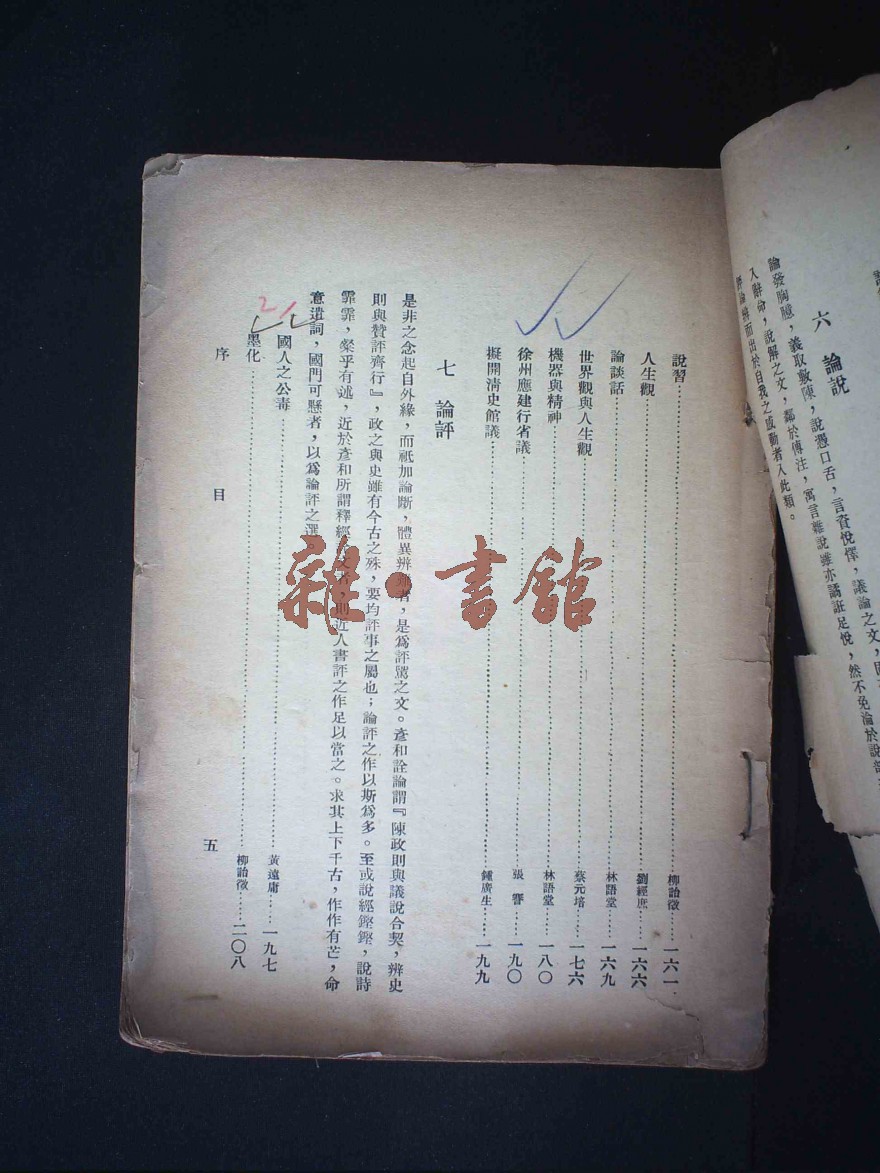 六　論說
論發胸臆，義取敷陳，說憑口舌，言資悅懌，議論之文，
入辭命，說解之文，鄰於傳注，寓言雜說雖亦譎誑足悅，然不免淪於說部，
而出於自我之啟動者入此類。
說習……柳詒徵……一六一
人生觀……劉經庶……一六六
論談話……林語堂……一六九
世界觀與人生觀……蔡元培……一七六
機器與精神……林語堂……一八〇
徐州應建行省議……張　謇……一九〇
擬開清史館議……鍾廣生……一九九
七　論評
是非之念起自外緣，而祇加論斷，體異辨難者，是爲評隲之文。彥和詮論謂『陳政則與議說合契，辨史
則與贊評齊行』，政之與史雖有今古之殊，要均評事之屬也；論評之作以斯爲多。至或說經鏗鏗，說詩
霏霏，粲乎有述，近於彥和所謂釋經文者，則近人書評之作足以當之。求其上下千古，作作有芒，命
意遣詞，國門可懸者，以爲論評之選。
國人之公毒……黃遠庸……一九七
墨化……柳詒徵……二〇八
序　目　五
雜·書館